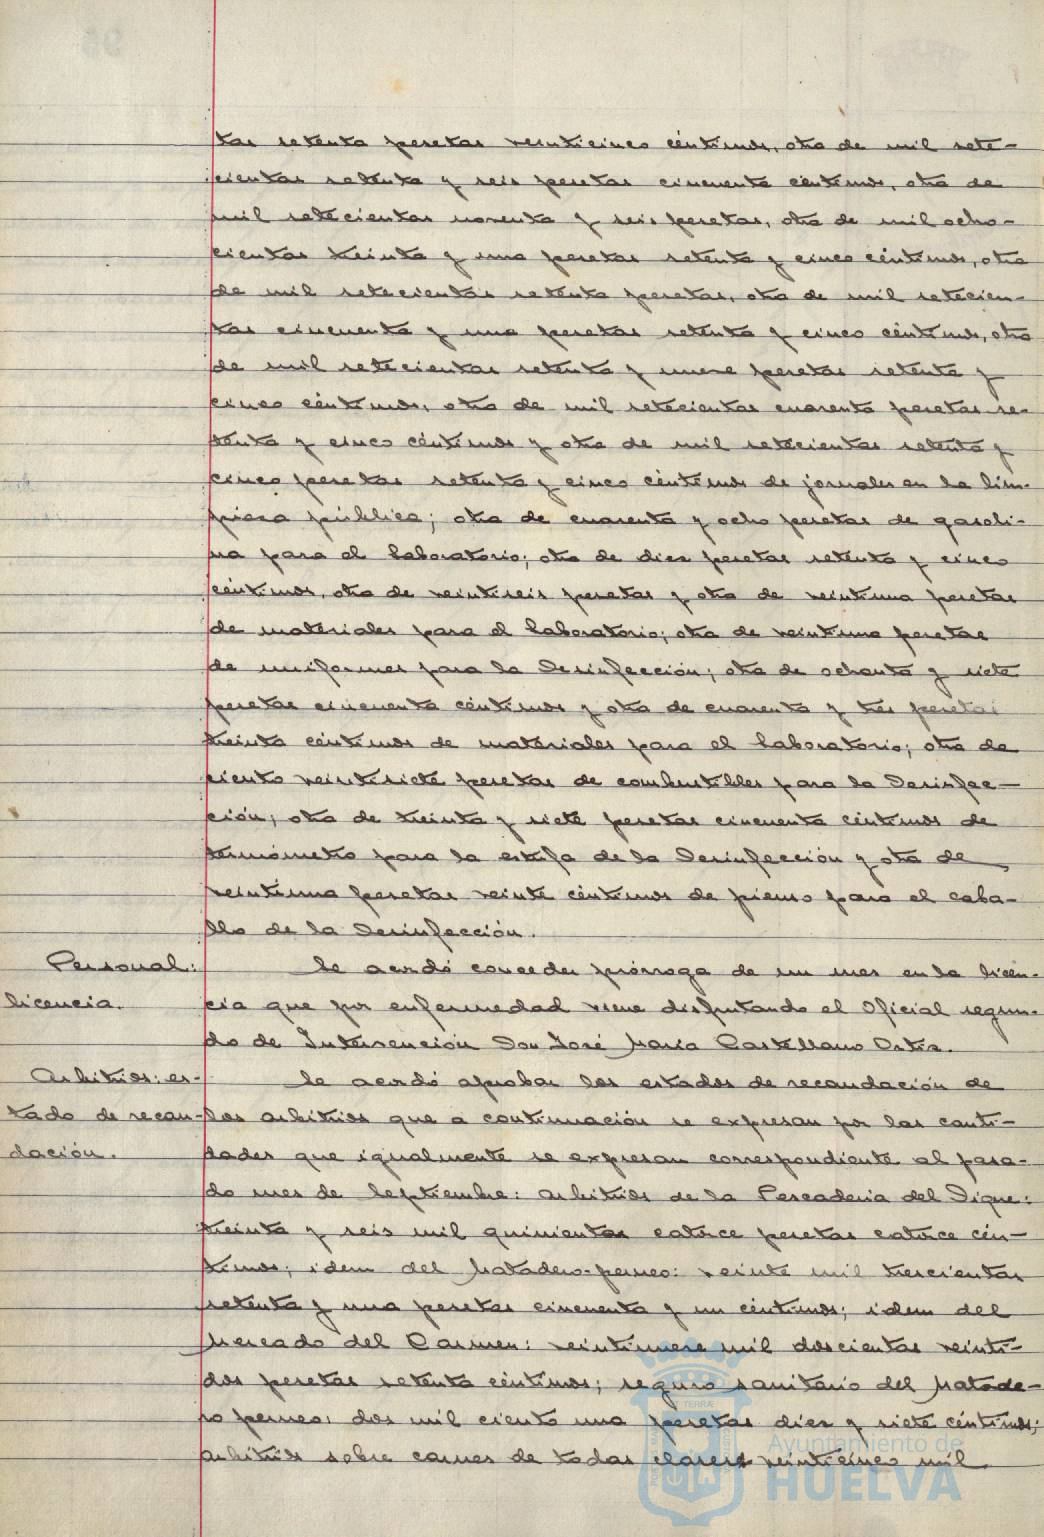 tas setenta pesetas veinticinco céntimos, otra de mil sete-
cientas setenta y seis pesetas cincuenta céntimos, otra de
mil setecientas noventa y seis pesetas, otra de mil ocho-
cientas treinta y una pesetas setenta y cinco céntimos, otra
de mil setecientas setenta pesetas, otra de mil setecien-
tas cincuenta y una pesetas setenta y cinco céntimos, otra
de mil setecientas setenta y nueve pesetas setenta y
cinco céntimos, otra de mil setecientas cuarenta pesetas se-
tenta y cinco céntimos y otra de mil setecientas setenta y
cinco pesetas setenta y cinco céntimos de jornales en la lim-
pieza pública; otra de cuarenta y ocho pesetas de gasoli-
na para el Laboratorio; otra de diez pesetas setenta y cinco
céntimos, otra de veintiseis pesetas y otra de veintiuna pesetas
de materiales para el Laboratorio; otra de veintiuna pesetas
de uniformes para la Desinfección; otra de ochenta y siete
pesetas cincuenta céntimos y otra de cuarenta y tres pesetas
treinta céntimos de materiales para el Laboratorio; otra de
ciento veintisiete pesetas de combustibles para la Desinfec-
ción; otra de treinta y siete pesetas cincuenta céntimos de
termómetro para la estufa de la Desinfección y otra de
veintiuna pesetas veinte céntimos de pienso para el caba-
llo de la Desinfección.
Personal: Se acordó conceder prórroga de un mes en la licen-
licencia. cia que por enfermedad viene disfrutando el Oficial segun-
do de Intervención Don José María Castellano Ortiz.
Arbitrios: es- Se acordó aprobar los estados de recaudación de
tado de recau- los arbitrios que a continuación se expresan por las canti-
dación. dades que igualmente se expresan correspondiente al pasa-
do mes de Septiembre: arbitrios de la Pescadería del Dique:
treinta y seis mil quinientas catorce pesetas catorce cén-
timos; idem del Matadero-perneo: veinte mil trescientas
setenta y una pesetas cincuenta y un céntimos; idem del
Mercado del Carmen: veintinueve mil doscientas veinti-
dos pesetas setenta céntimos; seguro sanitario del Matade-
ro perneo: dos mil ciento una pesetas diez y siete céntimos;
arbitrios sobre carnes de todas clases veinticinco mil
Ayuntamiento de
HUELVA